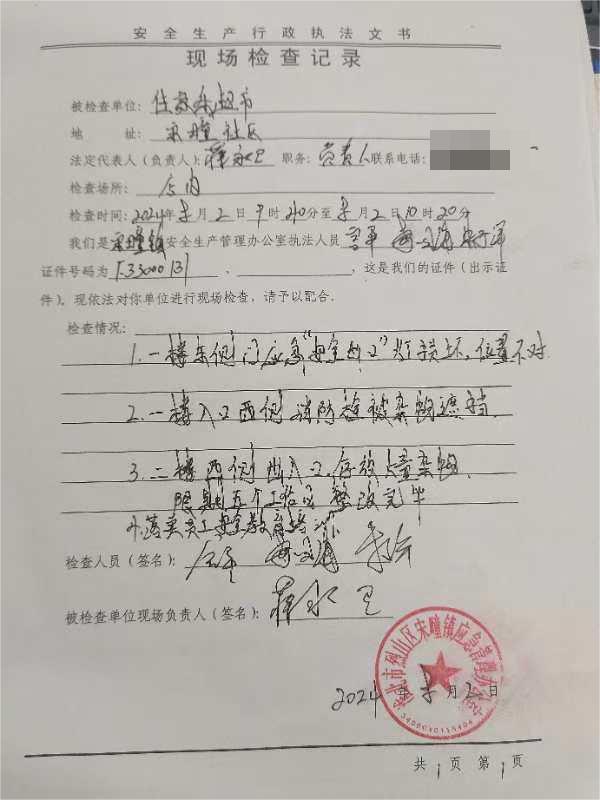 安全生产行政执法文书
现场检查记录
被检查单位：佳家乐超市
地 址：宋疃社区
法定代表人（负责人）：薛永卫 职务：负责人 联系电话：
检查场所：店内
检查时间：2024年 月2日9时40分至 月2日10时20分
我们是宋疃镇安全生产管理办公室执法人员
证件号码为 、 ，这是我们的证件（出示证
件）。现依法对你单位进行现场检查，请予以配合。
检查情况：
1.一楼东侧门应急"安全出口"灯损坏，位置不对
2.一楼入口西侧消防栓被杂物遮挡
3.二楼西侧出入口存放大量杂物
限期五个工作日整改完毕
4.落实员工安全教育培训
检查人员（签名）：
被检查单位现场负责人（签名）：薛永卫
淮北市烈山区宋疃镇应急管理办公室
2024年 月2日
共1页 第1页